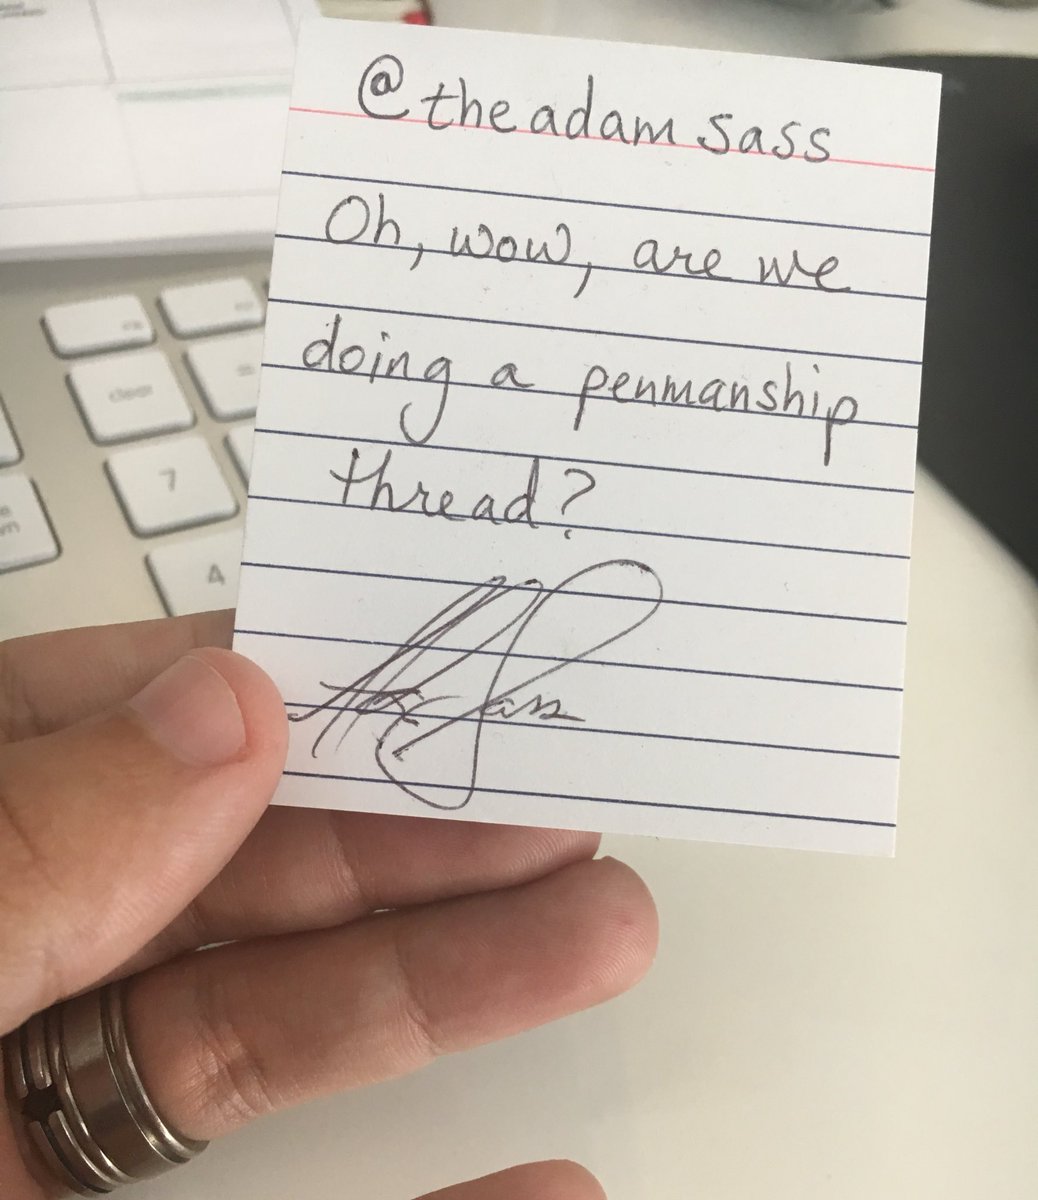 @theadamsass
Oh, wow, are we
doing a penmanship
thread?
Sass
clear
7
4